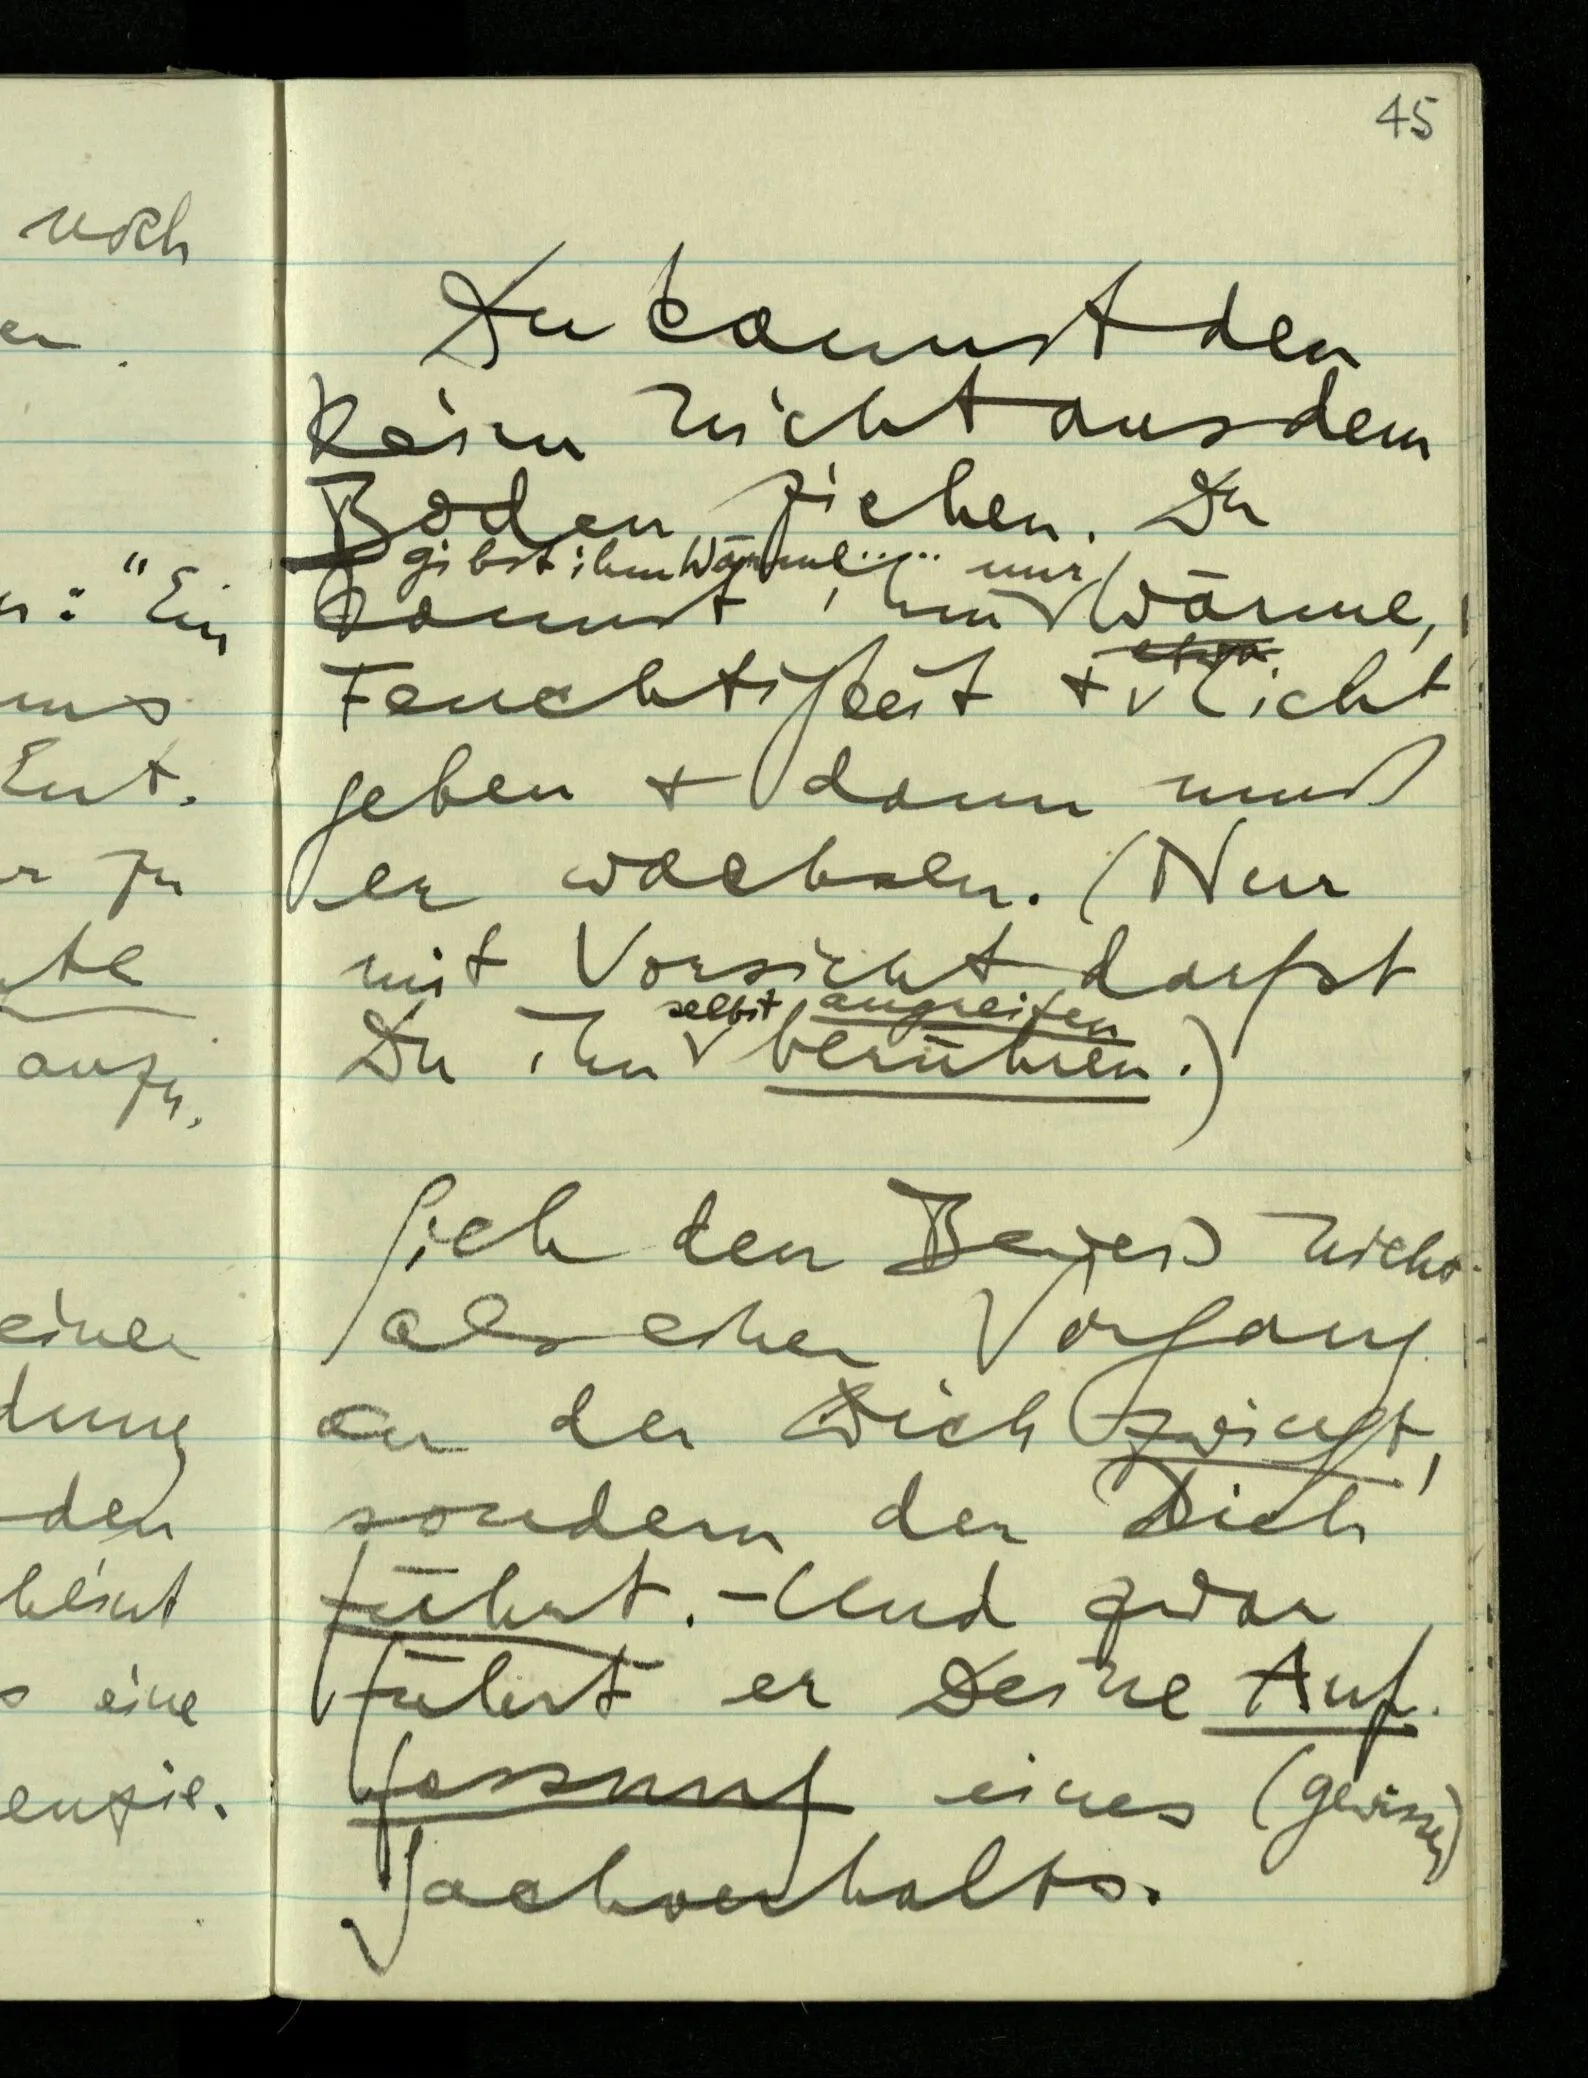 noch
en.
n: "Ein
uns
Ent-
r zu
te
anzu-
einen
dung
den
heint
s eine
enzie-
45
Du kannst den
Keim nicht aus dem
Boden ziehen. Du
gibst ihm Wärme..... nur
kannst ihm Wärme,
etwa
Feuchtigkeit + Licht
geben + dann muß
er wachsen. (Nur
mit Vorsicht darfst
selbst angreifen
Du ihn berühren.)
Sieh den Beweis nicht
als einen Vorgang
an der Dich zwingt,
sondern der Dich
führt. – Und zwar
führt er Deine Auf-
fassung eines (gewissen)
Sachverhalts.